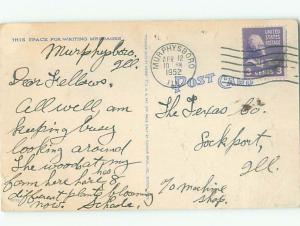 THIS SPACE FOR WRITING MESSAGES
Murphysboro,
Ill.
Dear Fellows,
All well, am
keeping busy
looking around
The woods at my
farm here has 8
different plants blooming
now. Schade.
MURPHYSBORO
APR 12
1952
ILL.
POST CARD
UNITED STATES
POSTAGE
3 CENTS 3
The Texas Co.
Lockport,
Ill.
To machine
shop.